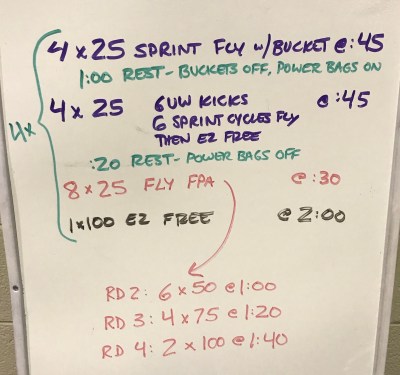 4 x 25 SPRINT FLY w/BUCKET @ :45
1:00 REST - BUCKETS OFF, POWER BAGS ON
4x
4 x 25 6 UW KICKS @ :45
6 SPRINT CYCLES FLY
THEN EZ FREE
:20 REST - POWER BAGS OFF
8 x 25 FLY FPA @ :30
1 x 100 EZ FREE @ 2:00
RD 2: 6 x 50 @ 1:00
RD 3: 4 x 75 @ 1:20
RD 4: 2 x 100 @ 1:40